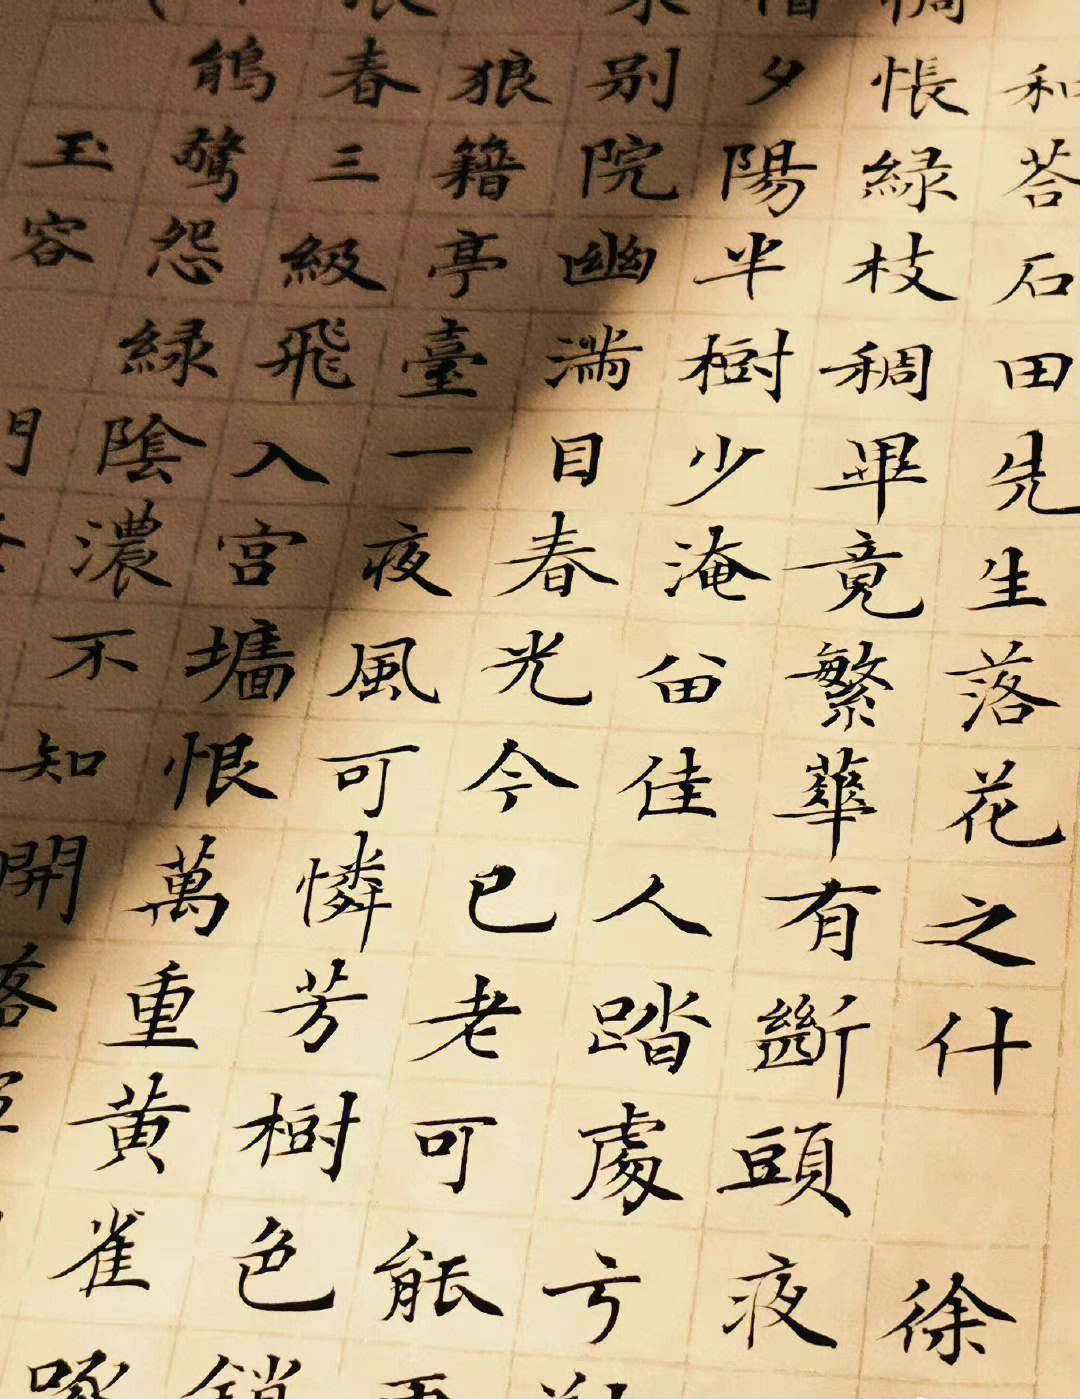 和荅石田先生落花之什 徐
惆悵緑枝稠畢竟繁華有斷頭夜
惜夕陽半樹少淹留佳人踏處亏
別院幽滿目春光今已老可能
狼籍亭臺一夜風可憐芳樹色鎖
春三級飛入宮墻恨萬重黃雀啄
鵑驚怨緑陰濃不知開落
玉容門